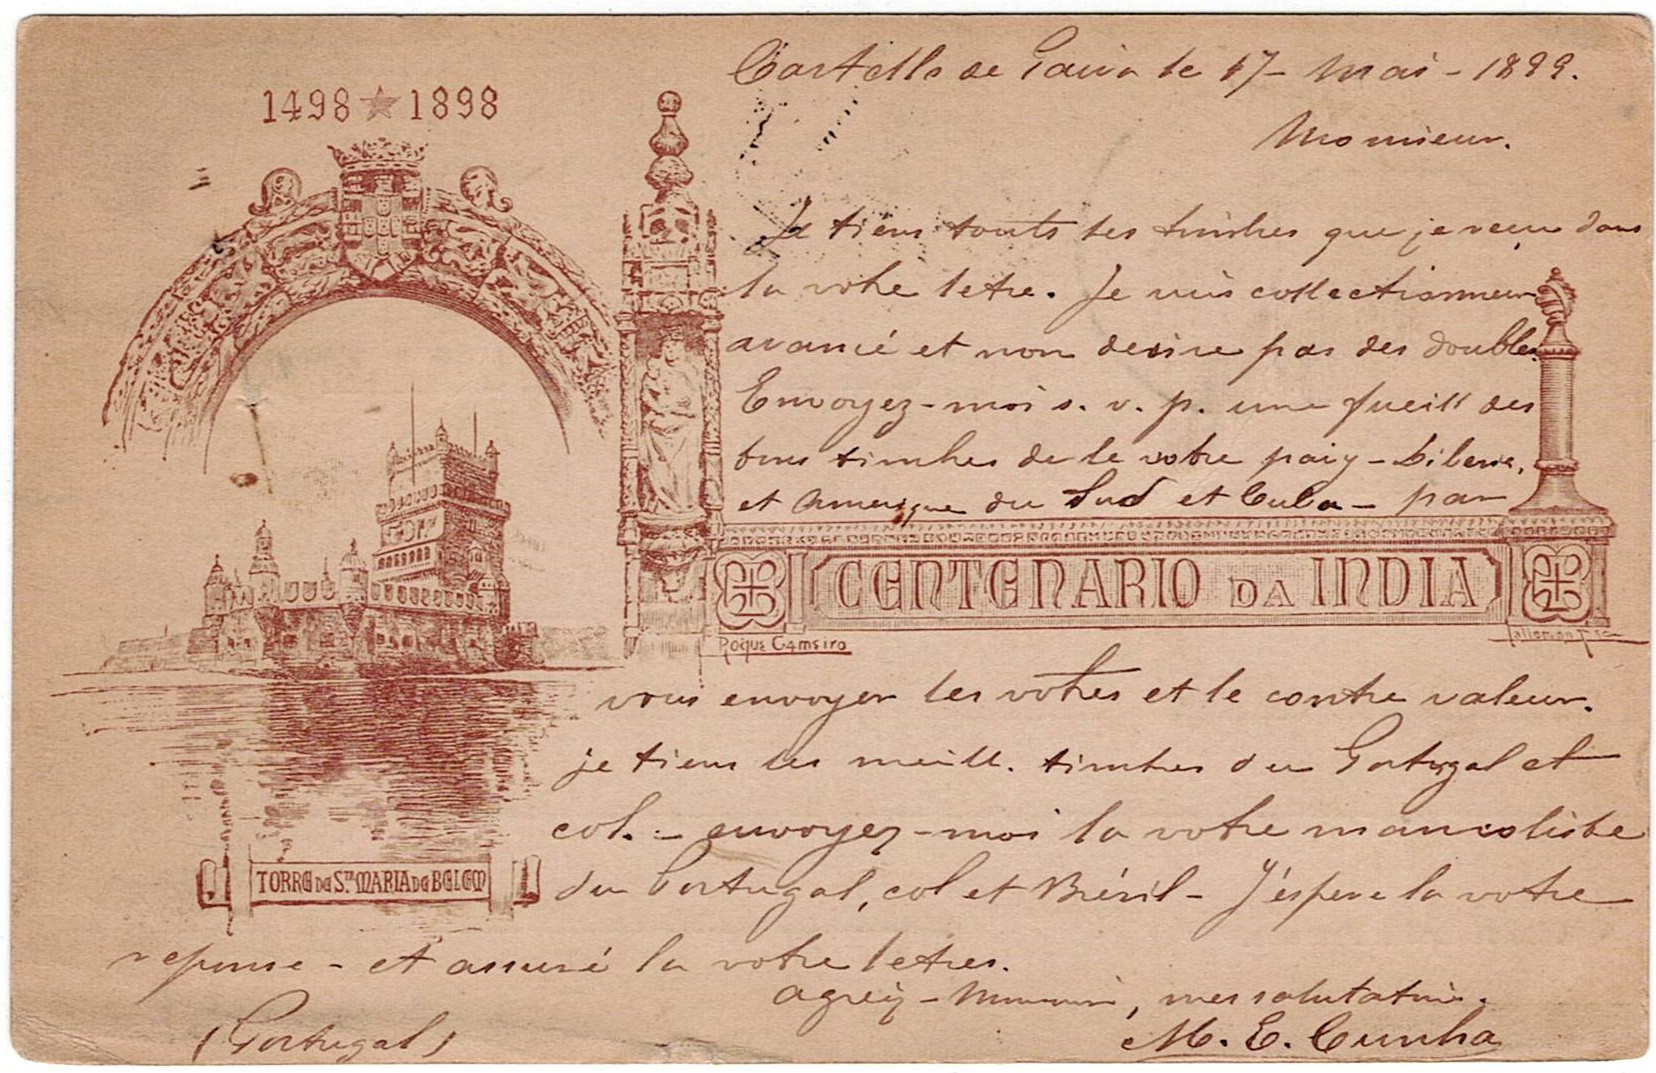 1498 ★ 1898
Castello de Paiva le 17 - Mai - 1899.
Monsieur.
Je tiens touts les timbres que je reçu dans
la votre letre. Je suis collectionneur
avancé et non desire pas des doubles
Envoyez-moi s. v. p. une fueill des
bons timbres de le votre paiz - Liberia,
et Amerique du Sud et Cuba - par
CENTENARIO DA INDIA
Roque Gameiro
vous envoyer les votres et le contre valeur.
je tiens les meill. timbres du Portugal et
col. - envoyez-moi la votre mancoliste
du Portugal, col et Brésil - J'éspere la votre
reponse - et assuré la votre letres.
TORRE DE S.TA MARIA DE BELEM
agreéz - Monsieur, mes salutations.
(Portugal)
M. E. Cunha